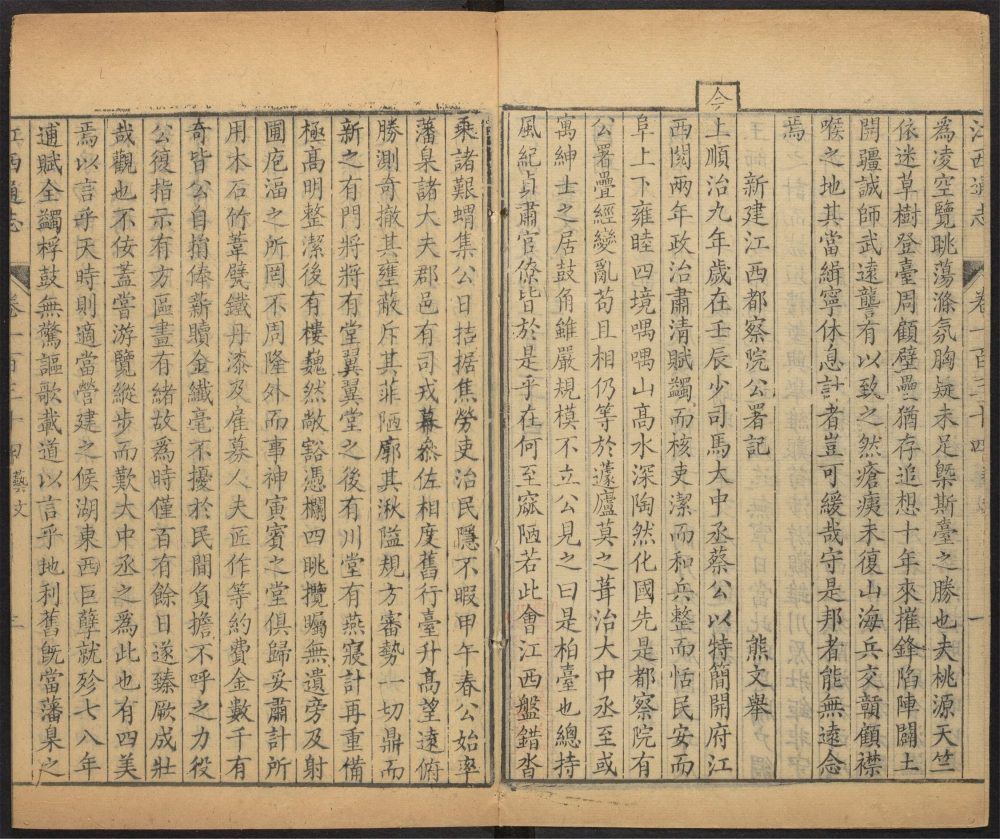 江西通志 卷一百三十四 藝文 一
為凌空覽眺蕩滌氛胸疑未足槩斯臺之勝也夫桃源天竺
依迷草樹登臺周顧壁壘猶存追想十年來摧鋒陷陣闢土
開疆誠師武遠讋有以致之然瘡痍未復山海兵交贛顧襟
喉之地其當緝寧休息計者豈可緩哉守是邦者能無遠念
焉
新建江西都察院公署記 熊文舉
今
上順治九年歲在壬辰少司馬大中丞蔡公以特簡開府江
西閱兩年政治肅清賦蠲而核吏潔而和兵整而恬民安而
阜上下雍睦四境喁喁山高水深陶然化國先是都察院有
公署疊經變亂苟且相仍等於蘧廬莫之葺治大中丞至或
寓紳士之居鼓角雖嚴規模不立公見之曰是柏臺也總持
風紀貞肅官僚皆於是乎在何至窳陋若此會江西盤錯沓
乘諸艱蝟集公日拮据焦勞吏治民隱不暇甲午春公始率
藩臬諸大夫郡邑有司戎幕叅佐相度舊行臺升高望遠俯
勝測奇撤其壅蔽斥其菲陋廓其湫隘規方審勢一切鼎而
新之有門將將有堂翼翼堂之後有川堂有燕寢計再重備
極高明整潔後有樓巍然敞豁憑欄四眺攬矚無遺旁及射
圃庖湢之所罔不周隆外而事神寅賓之堂俱歸妥肅計所
用木石竹葦甓鐵丹漆及雇募人夫匠作等約費金數千有
奇皆公自捐俸薪贖金纖毫不擾於民間負擔不呼之力役
公復指示有方區畫有緒故為時僅百有餘日遂臻厥成壯
哉觀也不佞蓋嘗游覽縱步而歎大中丞之為此也有四美
焉以言乎天時則適當營建之候湖東西巨孽就殄七八年
逋賦全蠲桴鼓無驚謳歌載道以言乎地利舊旣當藩臬之
江西通志 卷一百三十四 藝文 二